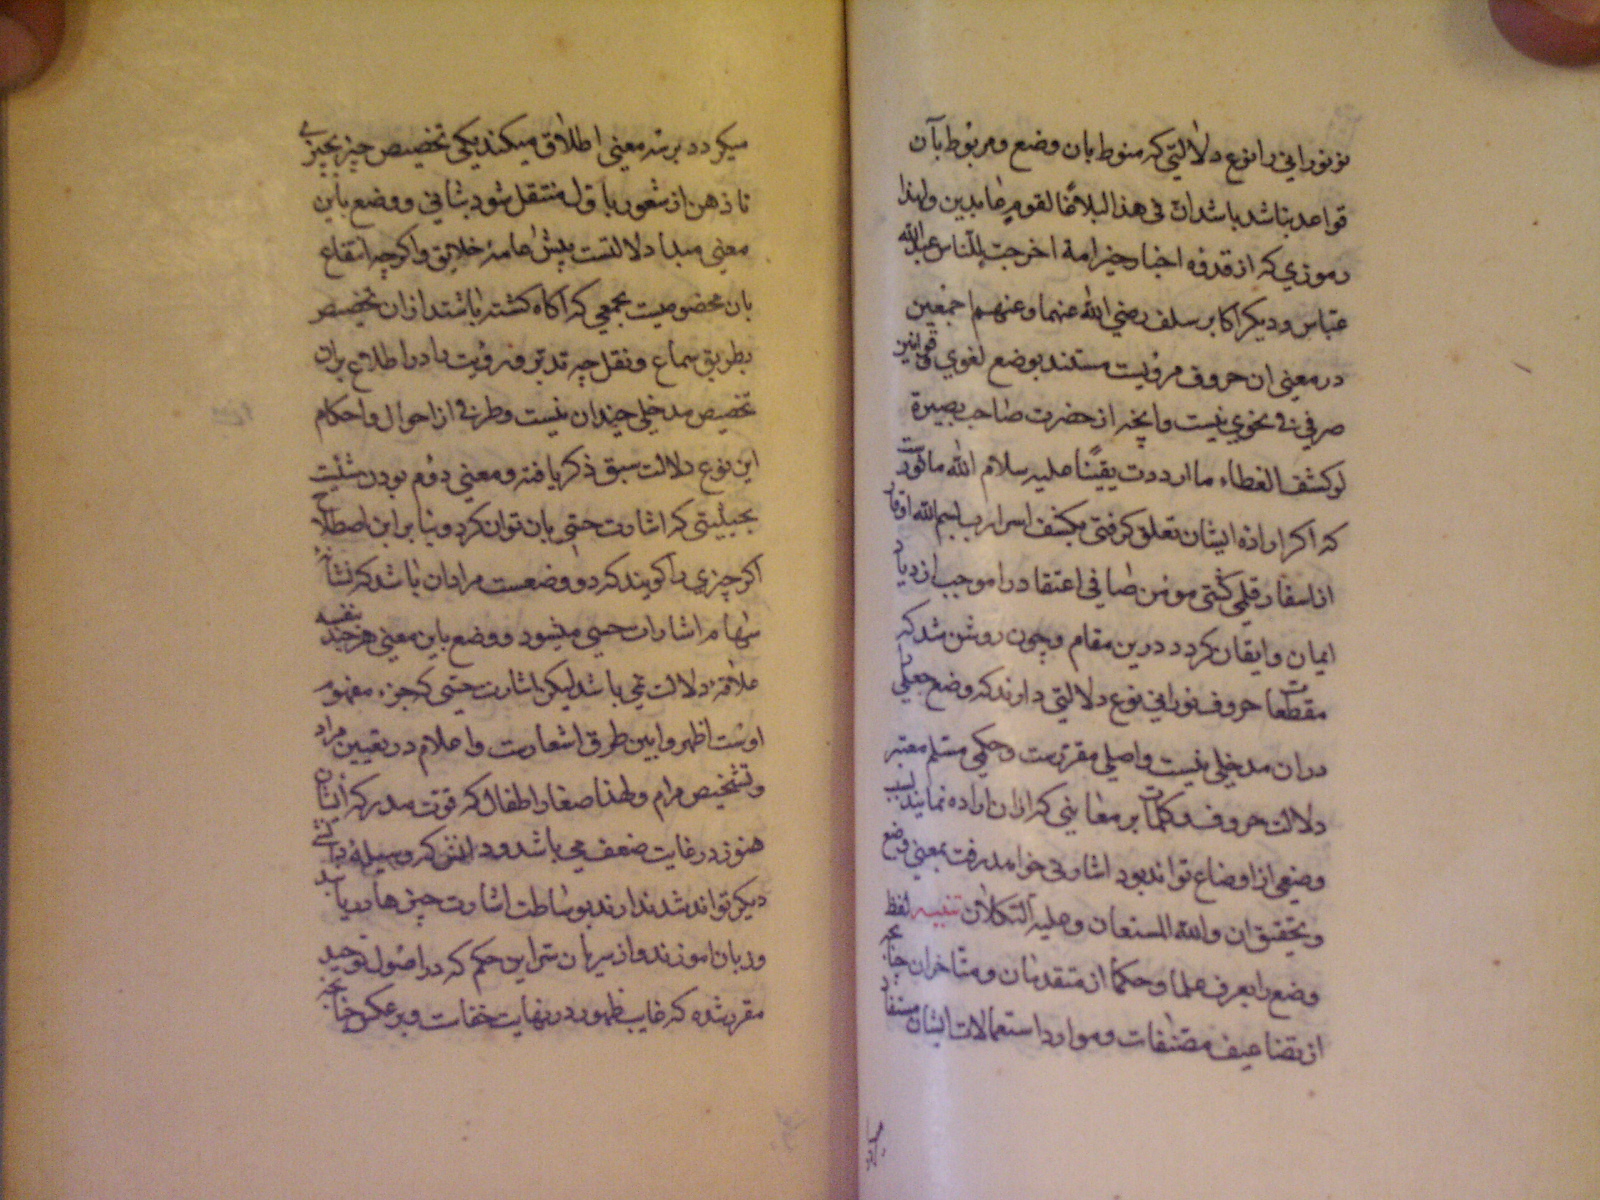 نو نورانی را نوع دلالتی که منوط بان وضع و مربوط بآن
قواعد بناشد باشد ان فی هذا البلاغا لقوم عابدین ولهذا
رموزی که از قدوه اخبار خیر امة اخرجت للناس عبدالله
عباس و دیکر اکابر سلف رضی الله عنهما و عنهم اجمعین
در معنی ان حروف مرویست مستند بوضع لغوی و قوانین
صرفی و نحوی نیست و آنچه از حضرت صاحب بصیرة
لو کشف الغطاء ما ازددت یقینا علیه سلام الله ماثورست
که اکر اراده ایشان تعلق کرفتی بکشف اسرار ب بسم الله اوقار
از اسفار قلمی کشتی مومن صافی اعتقاد را موجب ازدیاد
ایمان و ایقان کردد درین مقام و چون روشن شد که
مقطعات حروف نورانی نوع دلالتی دارند که وضع جعلی را
دران مدخلی نیست و اصلی مقررست و حکمی مسلم معتبر
دلالت حروف و کلمات بر معانی که ازان اراده نمایند بسبب
وضعی از اوضاع تواند بود اشارتی خواهد رفت بمعنی وضع
و تحقیق ان والله المستعان و علیه التکلان تنبیه لفظ
وضع را بعرف علما و حکما از متقدمان و متاخران چنانچه
از تضاعیف مصنفات و موارد استعمالات ایشان مستفاد
میکردد
میکردد بر سه معنی اطلاق میکنند یکی تخصیص چیز بچیزی
تا ذهن از شعور باول منتقل شود بثانی و وضع باین
معنی مبداء دلالتست پیش عامه خلایق و اکرچه انتفاع
بان مخصوصیت بجمعی که آکاه کشته باشند ازان تخصیص
بطریق سماع و نقل چه تدبر و رویت را در اطلاع بران
تخصیص مدخلی چندان نیست و طرفی از احوال و احکام
این نوع دلالت سبق ذکر یافته و معنی دوم بودن شئیست
بحیثیتی که اشارت حسی بان توان کرد و بنا بر این اصطلاح
اکر چیزی را کویند که ذو وضعست مراد ان باشد که نشانه
سهام اشارات حسی میشود و وضع باین معنی هرچند بنفسه
علاقه دلالت نمی باشد لیکن اشارت حسی که جزء مفهوم
اوست اظهر و ابین طرق اشعارست و اعلام در تعیین مراد
و تشخیص مرام ولهذا صغار اطفال که قوت مدرکه ایشان
هنوز در غایت ضعف می باشد و دانش که وسیله دانستن
دیکر تواند شد ندارند بوساطت اشارت چیزها دریابند
و زبان اموزند و از برهان سر این حکم که در اصول توحید
مقرر شده که غایب ظهور در نهایت خفات و بر عکس چنانچه